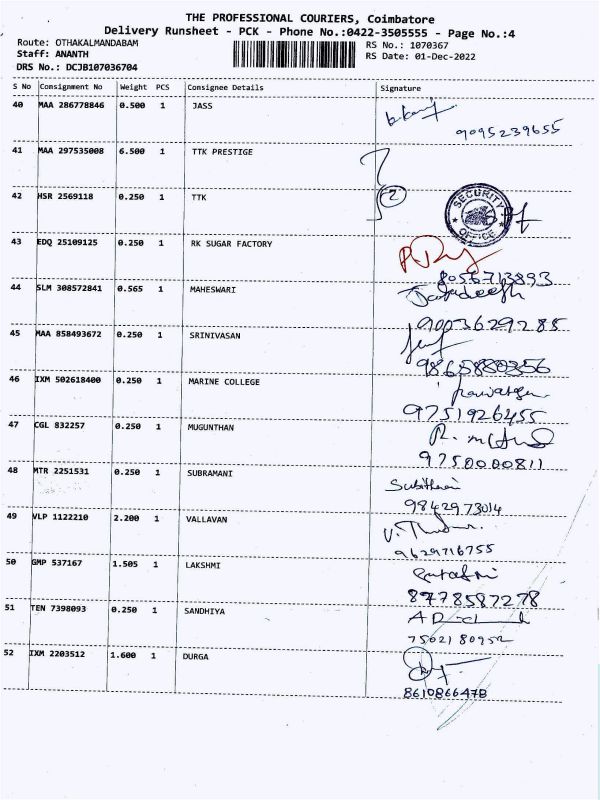 THE PROFESSIONAL COURIERS, Coimbatore
Delivery Runsheet - PCK - Phone No.:0422-3505555 - Page No.:4
Route: OTHAKALMANDABAM RS No.: 1070367
Staff: ANANTH RS Date: 01-Dec-2022
DRS No.: DCJB107036704
S No Consignment No Weight PCS Consignee Details Signature
40 MAA 286778846 0.500 1 JASS
9095239655
41 MAA 297535008 6.500 1 TTK PRESTIGE
42 HSR 2569118 0.250 1 TTK
2
SECURITY OFFICE
43 EDQ 25109125 0.250 1 RK SUGAR FACTORY
8056713893
44 SLM 308572841 0.565 1 MAHESWARI
9003629285
45 MAA 858493672 0.250 1 SRINIVASAN
9865880356
46 IXM 502618400 0.250 1 MARINE COLLEGE
9751926455
47 CGL 832257 0.250 1 MUGUNTHAN
9750000811
48 MTR 2251531 0.250 1 SUBRAMANI
9842973014
49 VLP 1122210 2.200 1 VALLAVAN
9629716755
50 GMP 537167 1.505 1 LAKSHMI
8778587278
51 TEN 7398093 0.250 1 SANDHIYA
7502180952
52 IXM 2203512 1.600 1 DURGA